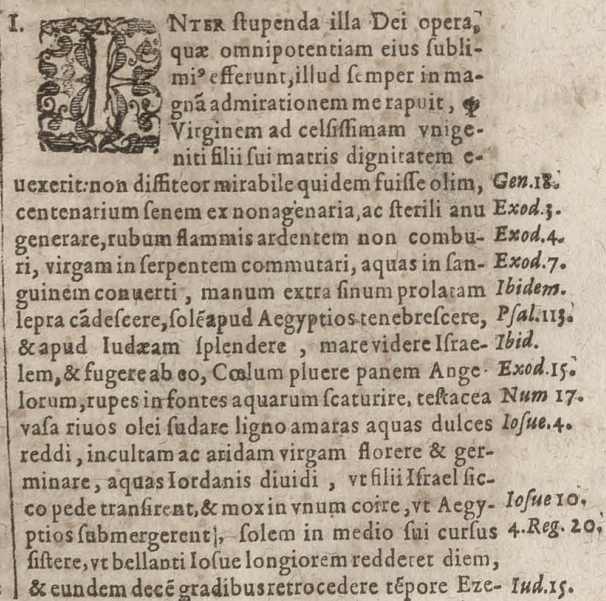 I. INTER ſtupenda illa Dei opera,
quæ omnipotentiam eius ſubli-
miꝰ efferunt, illud ſemper in ma-
gnā admirationem me rapuit, ꝙ
Virginem ad celſiſſimam vnige-
niti filii ſui matris dignitatem e-
uexerit: non diffiteor mirabile quidem fuiſſe olim, Gen.18.
centenarium ſenem ex nonagenaria, ac ſterili anu Exod.3.
generare, rubum flammis ardentem non combu- Exod.4.
ri, virgam in ſerpentem commutari, aquas in ſan- Exod.7.
guinem conuerti, manum extra ſinum prolatam Ibidem.
lepra cādeſcere, ſolē apud Aegyptios tenebreſcere, Pſal.113.
& apud Iudæam ſplendere, mare videre Iſrae- Ibid.
lem, & fugere ab eo, Cœlum pluere panem Ange- Exod.15.
lorum, rupes in fontes aquarum ſcaturire, teſtacea Num 17.
vaſa riuos olei ſudare ligno amaras aquas dulces Ioſue.4.
reddi, incultam ac aridam virgam florere & ger-
minare, aquas Iordanis diuidi, vt filii Iſrael ſic-
co pede tranſirent, & mox in vnum coire, vt Aegy- Ioſue 10.
ptios ſubmergerent, ſolem in medio ſui curſus 4.Reg. 20.
ſiſtere, vt bellanti Ioſue longiorem redderet diem,
& eundem decē gradibus retrocedere tēpore Eze- Iud.15.